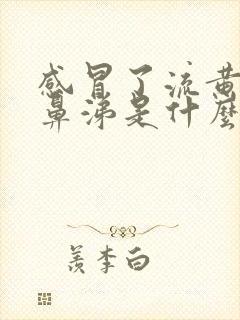 感冒了流黄
鼻涕是什麼
羨李白